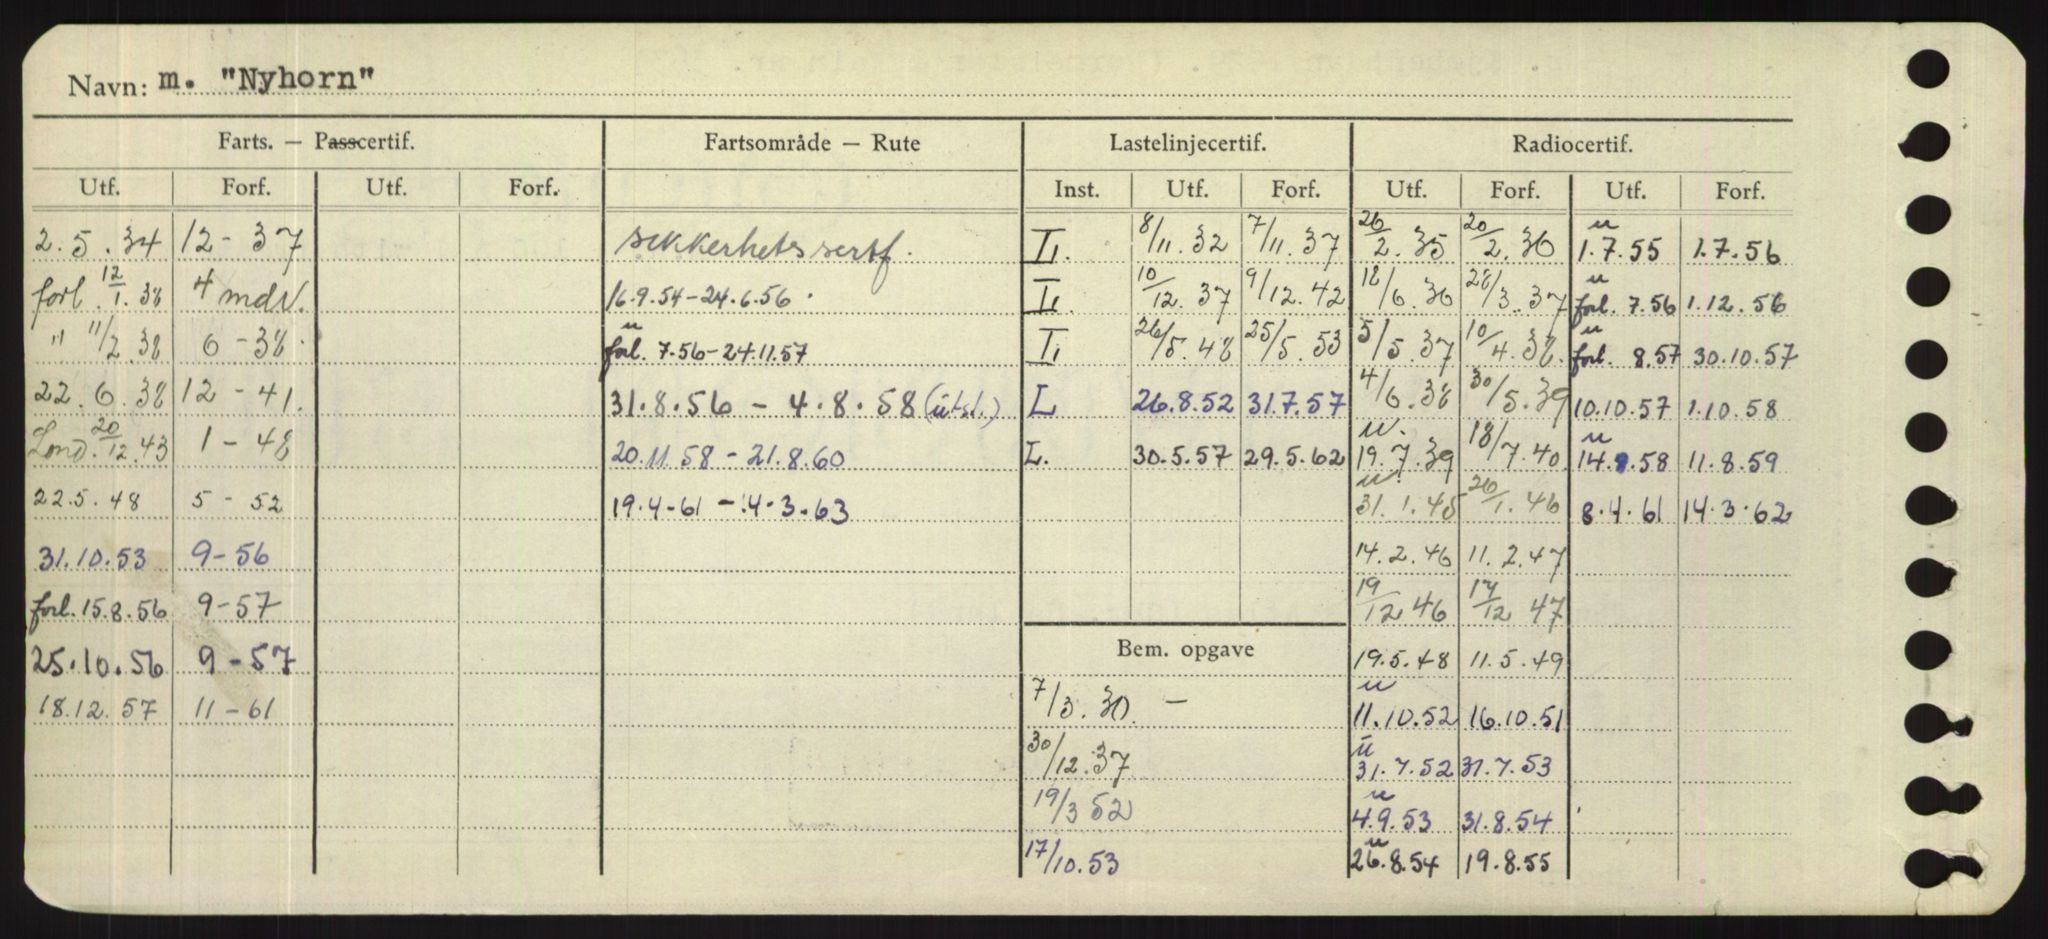 Navn: m. "Nyhorn"
Farts. — Passcertif. Fartsområde — Rute Lastelinjecertif. Radiocertif.
Utf. Forf. Utf. Forf. Inst. Utf. Forf. Utf. Forf. Utf. Forf.
2.5.34 12-37 sikkerhetssertf. L. 8/11.32 7/11.37 26/2.35 20/2.36 u 1.7.55 1.7.56
forl. 12/1.38 4 mdv. 16.9.54-24.6.56. L. 10/12.37 9/12.42 18/6.36 28/3.37 u forl. 7.56 1.12.56
" 11/2.38 6-38. u forl. 7.56-24.11.57 L. 26/5.48 25/5.53 5/5.37 10/4.38. u forl. 8.57 30.10.57
22.6.38 12-41. 31.8.56 - 4.8.58 (utst.) L 26.8.52 31.7.57 4/6.38 30/5.39 10.10.57 1.10.58
Lond. 20/12.43 1-48 20.11.58-21.8.60 L. 30.5.57 29.5.62 u. 19.7.39 18/7.40 u 14.8.58 11.8.59
22.5.48 5-52 19.4-61 - 4.3.63 u. 31.1.45 26/1.46 8.4.61 14.3.62
31.10.53 9-56 14.2.46 11.2.47
forl. 15.8.56 9-57 19/12 46 17/12 47
25.10.56 9-57 Bem. opgave 19.5.48 11.5.49
18.12.57 11-61 7/3.30 - u 11.10.52 16.10.51
30/12.37 u 31.7.52 31.7.53
19/3 52 u 4.9.53 31.8.54
17/10.53 u 26.8.54 19.8.55